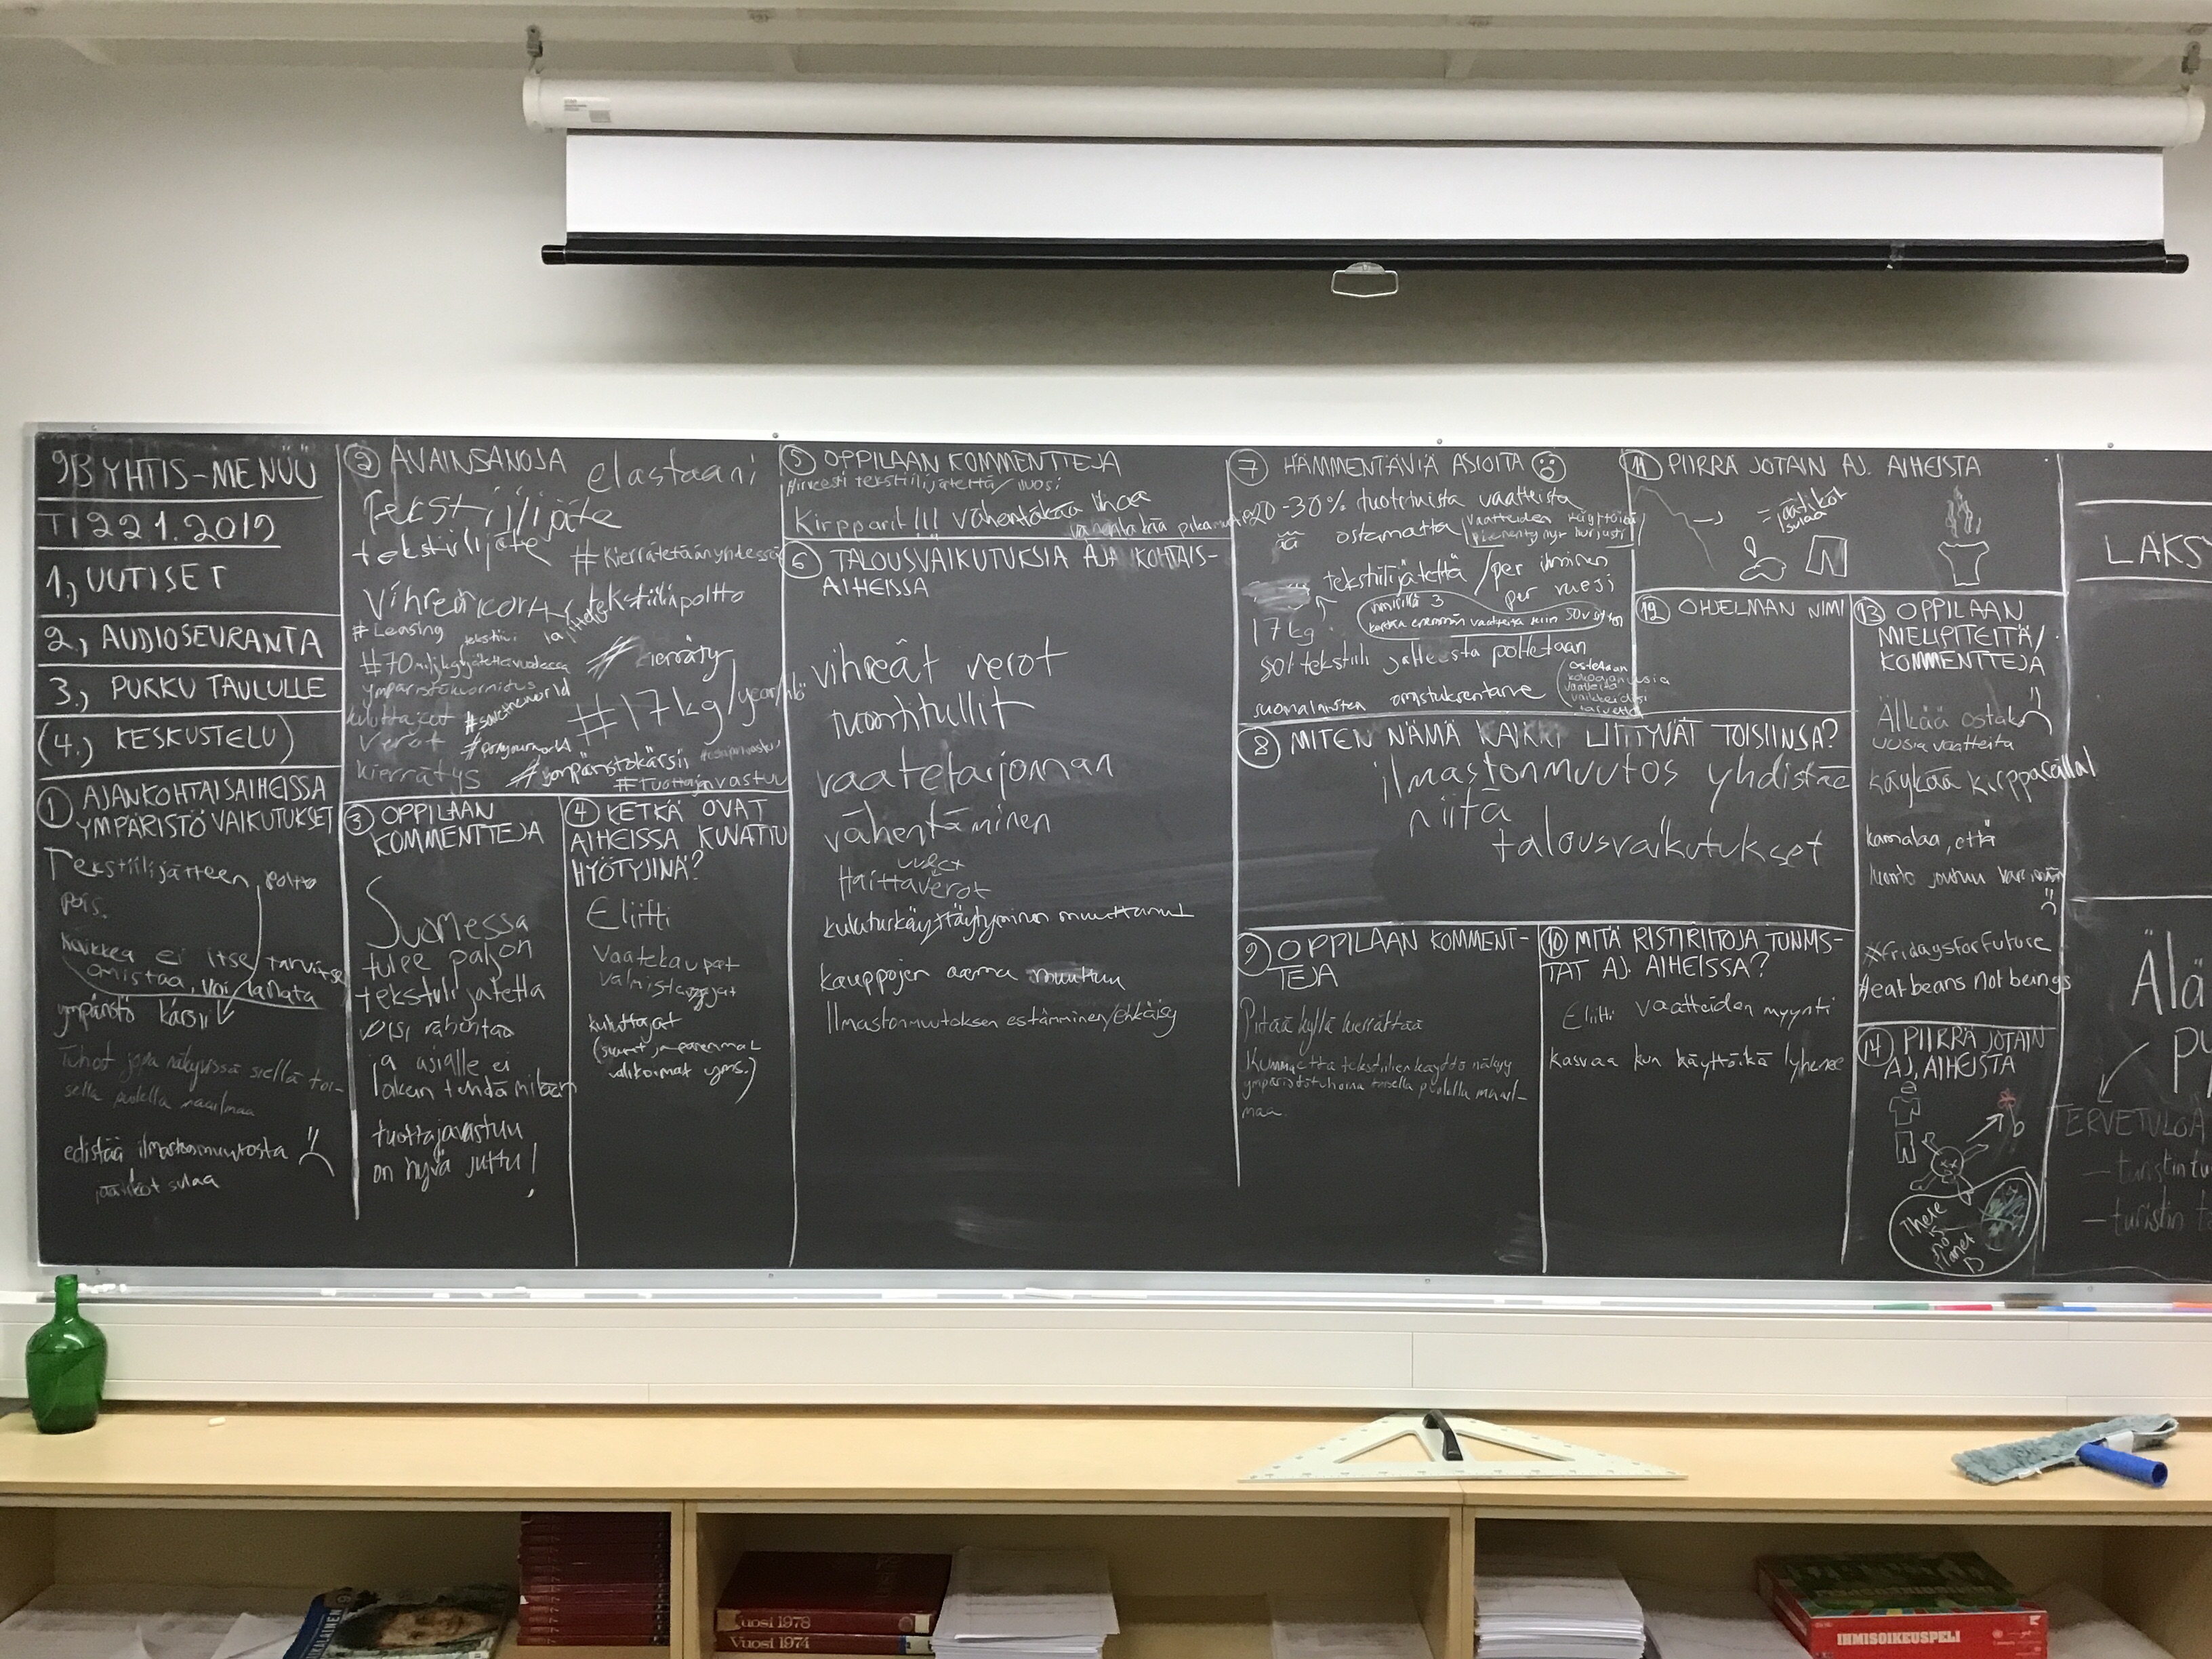 9B YHTIS-MENÜÜ
TI 22.1.2019
1., UUTISET
2., AUDIOSEURANTA
3., PUKKU TAULULLE
(4.) KESKUSTELU)
① AJANKOHTAISAIHEISSA
YMPÄRISTÖVAIKUTUKSET
Tekstiilijätteen poltto
pois.
Kaikkea ei itse tarvitse
omistaa, voi lainata
ympäristö kärsii
Tuhot jopa näkyvissä siellä toi-
sella puolella maailmaa
edistää ilmastonmuutosta
jäätiköt sulaa
② AVAINSANOJA
elastaani
Tekstiilijäte
tekstiilijäte
#Kierrätetäänyhdessä
Vihreä
tekstiilipoltto
#Leasing
lajittelu
#70milj.kgjätettävuodessa
#kierräty
ympäristökuormitus
kuluttajat
#savetheworld
#17kg/year/hlö
verot
kierrätys
#ympäristökärsii
#Tuottajanvastuu
③ OPPILAAN
KOMMENTTEJA
Suomessa
tulee paljon
tekstiilijätettä
voisi vähentää
ja asialle ei
tehdä mitään
tuottajavastuu
on hyvä juttu!
④ KETKÄ OVAT
AIHEISSA KUVATTU
HYÖTYJINÄ?
Eliitti
Vaatekaupat
valmistajat
kuluttajat
(suuret ja paremmat
valikoimat yms.)
⑤ OPPILAAN KOMMENTTEJA
Hirveesti tekstiilijätettä/vuosi
Kirpparit!!! Vähentäkää lihaa
⑥ TALOUSVAIKUTUKSIA AJANKOHTAIS-
AIHEISSA
vihreät verot
tuontitullit
vaatetarjonnan
vähentäminen
uudet
Haittaverot
kulutuskäyttäytyminen muuttunut
kauppojen asema muuttuu
Ilmastonmuutoksen estäminen/ehkäisy
⑦ HÄMMENTÄVIÄ ASIOITA
20-30% tuotetuista vaatteista
ostamatta
Vaatteiden käyttöikä
pienentynyt hurjasti
tekstiilijätettä /per ihminen
per vuosi
17kg
ihmisillä 3
kertaa enemmän vaatteita kuin 50v sitten
tekstiili jätteestä poltetaan
suomalaisten omistuksentarve
ostetaan
vaatteita
vaikkei olisi
tarvetta
⑧ MITEN NÄMÄ KAIKKI LIITTYVÄT TOISIINSA?
ilmastonmuutos yhdistää
niitä
talousvaikutukset
⑨ OPPILAAN KOMMENT-
TEJA
Pitää kyllä kierrättää
Kumma että tekstiilien käyttö näkyy
ympäristötuhoina toisella puolella maail-
maa.
⑩ MITÄ RISTIRIITOJA TUNNIS-
TAT AJ. AIHEISSA?
Eliitti vaatteiden myynti
kasvaa kun käyttöikä lyhenee
⑪ PIIRRÄ JOTAIN AJ. AIHEISTA
= jäätiköt
sulaa
⑫ OHJELMAN NIMI
⑬ OPPILAAN
MIELIPITEITÄ/
KOMMENTTEJA
Älkää ostako
uusia vaatteita
käykää kirppareilla!
kamalaa, että
luonto joutuu kärsimään
#fridaysforfuture
#eatbeansnotbeings
⑭ PIIRRÄ JOTAIN
AJ. AIHEISTA
There
is
no
Planet
B
LÄKS
Älä
PU
TERVETULOA
— turistin tu
— turistin t
Vuosi 1978
Vuosi 1974
IHMISOIKEUSPELI